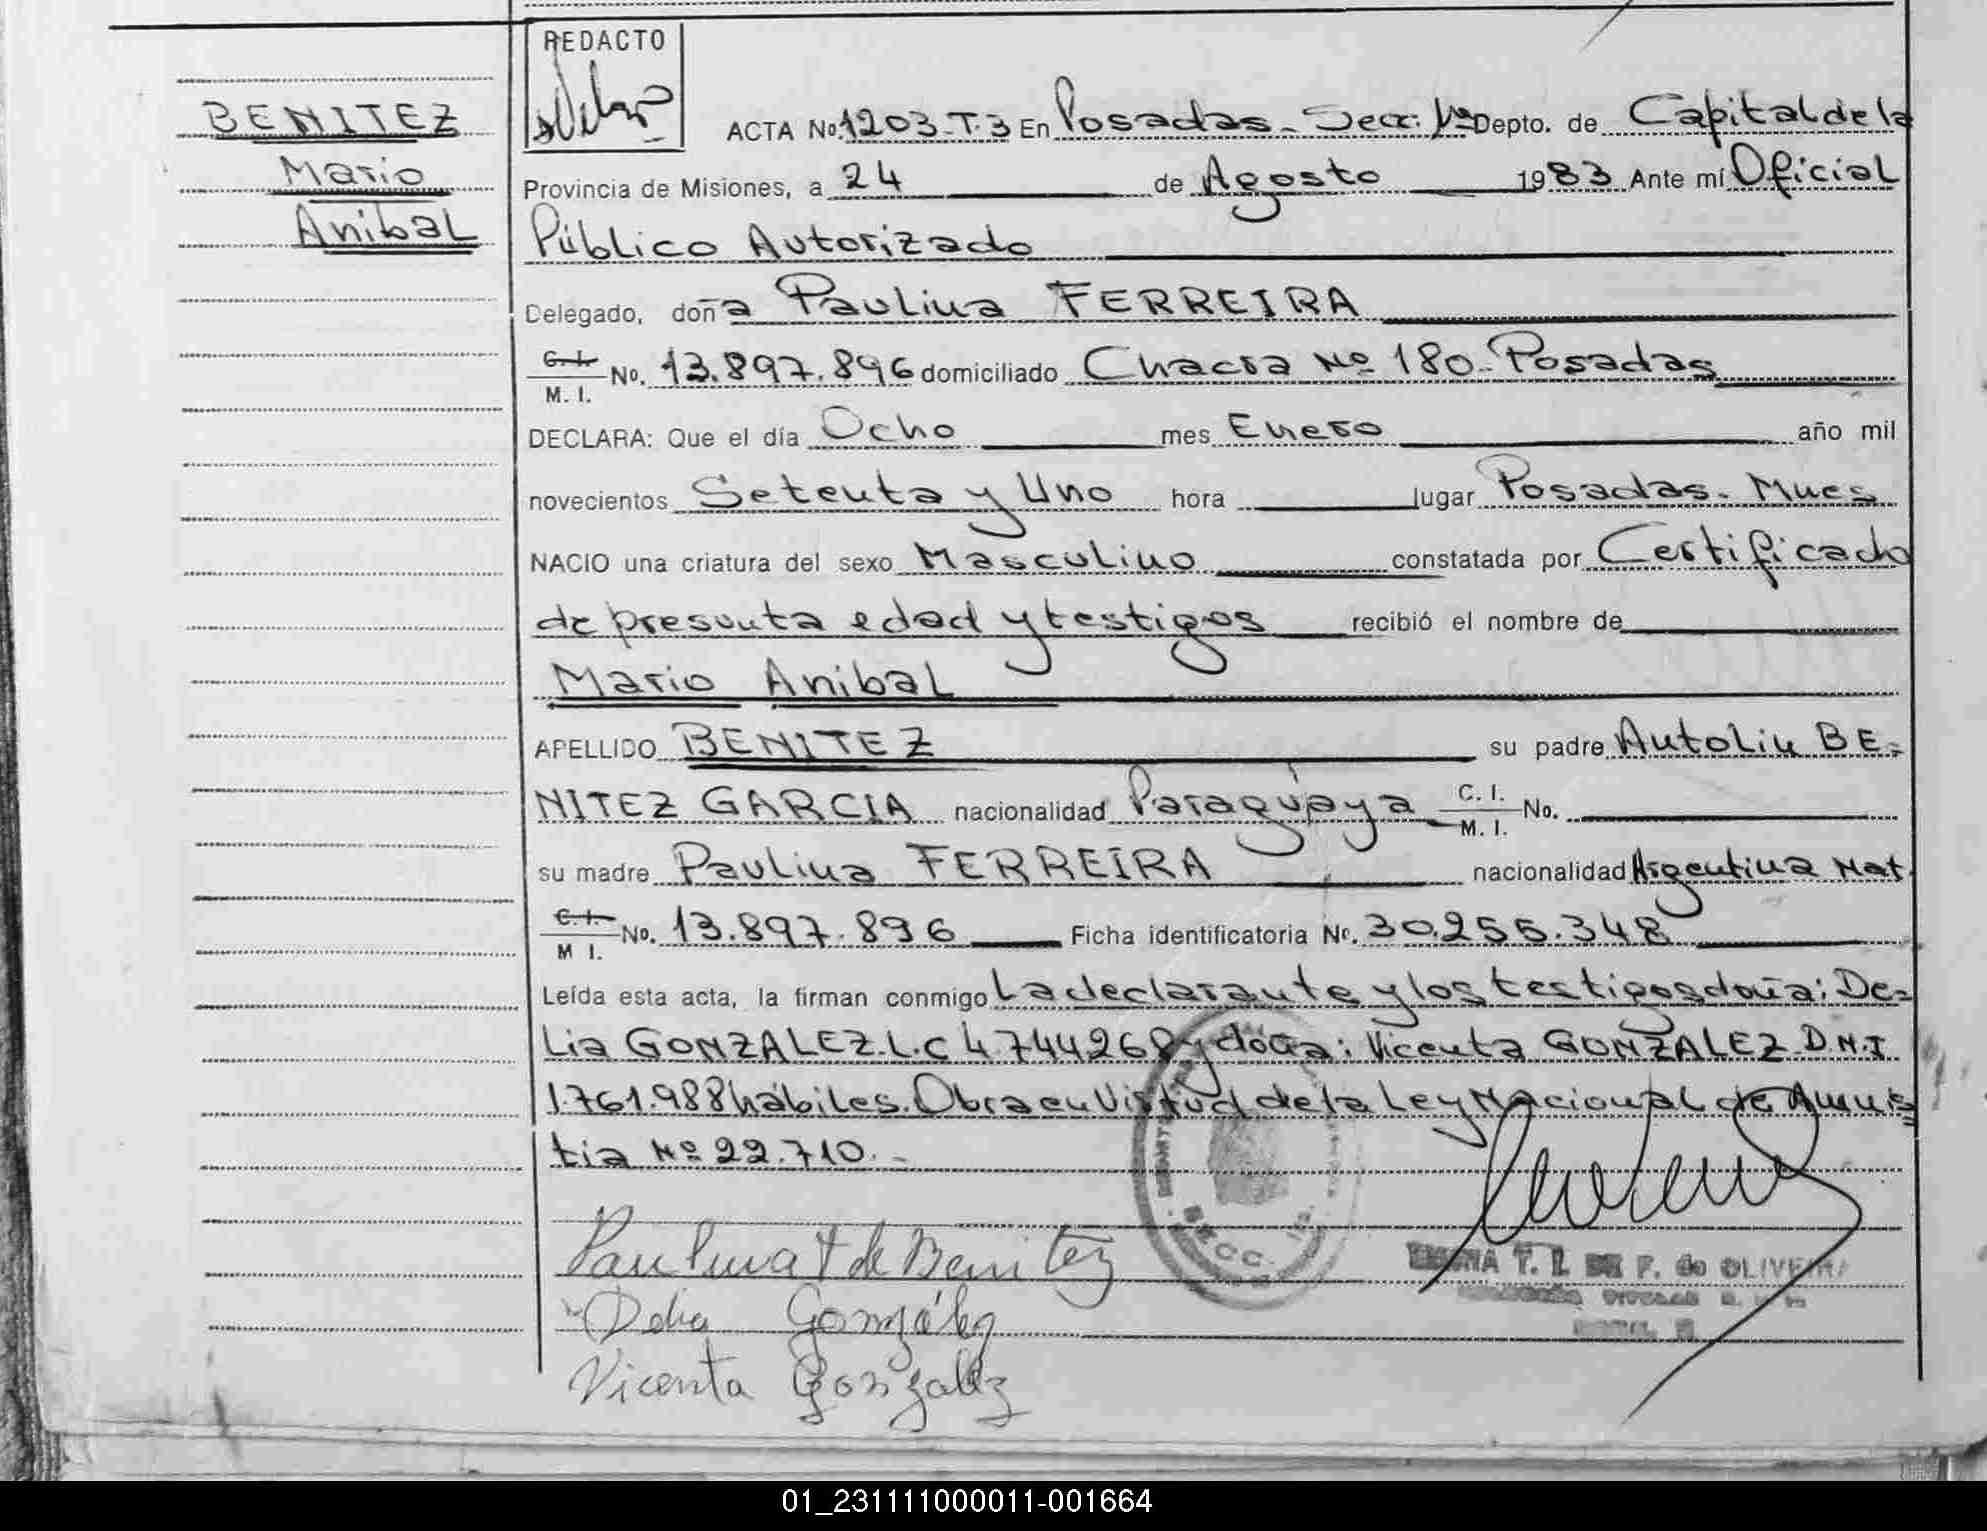 REDACTO
BENITEZ
Mario
Anibal
ACTA No. 1203.T.3 En Posadas. Secc. 1ª Depto. de Capital de la
Provincia de Misiones, a 24 de Agosto 1983 Ante mí Oficial
Público Autorizado
Delegado, doña Paulina FERREIRA
C.I. M.I. No. 13.897.896 domiciliado Chacra Nº 180. Posadas
DECLARA: Que el día Ocho mes Enero año mil
novecientos Setenta y Uno hora lugar Posadas. Mnes
NACIO una criatura del sexo Masculino constatada por Certificado
de presunta edad y testigos recibió el nombre de
Mario Anibal
APELLIDO BENITEZ su padre Antolin BE=
NITEZ GARCIA nacionalidad Paraguaya C.I. M.I. No.
su madre Paulina FERREIRA nacionalidad Argentina Nat.
C.I. M I. No. 13.897.896 Ficha identificatoria Nº. 30.255.348
Leída esta acta, la firman conmigo La declarante y los testigos doña: De=
lia GONZALEZ. L.C 4.744268 y doña: Vicenta GONZALEZ D.N.I
1.761.988 hábiles. Obra en Virtud de la Ley Nacional de Amnis
tia Nº 22.710.-
Paulina F de Benitez
Delia González
Vicenta Gonzalez
T. I. DE F. de OLIVEIRA
SECC.
01_231111000011-001664